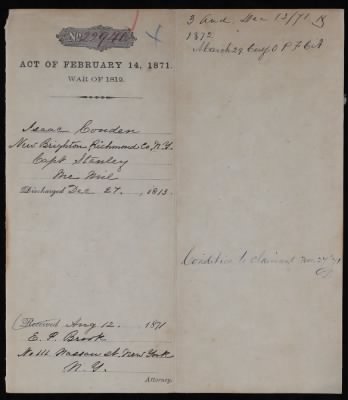 No. 22948
ACT OF FEBRUARY 14, 1871.
WAR OF 1812.
Isaac Conden
New Brighton Richmond Co N.Y.
Capt Stanley
Discharged Dec 27, 1813.
Received Aug 12. 1871
E. P. Brook
No 111 Nassau St. New York
N. Y.
Attorney.
3 And. Dec 13/71
1872
March 29
to claimant